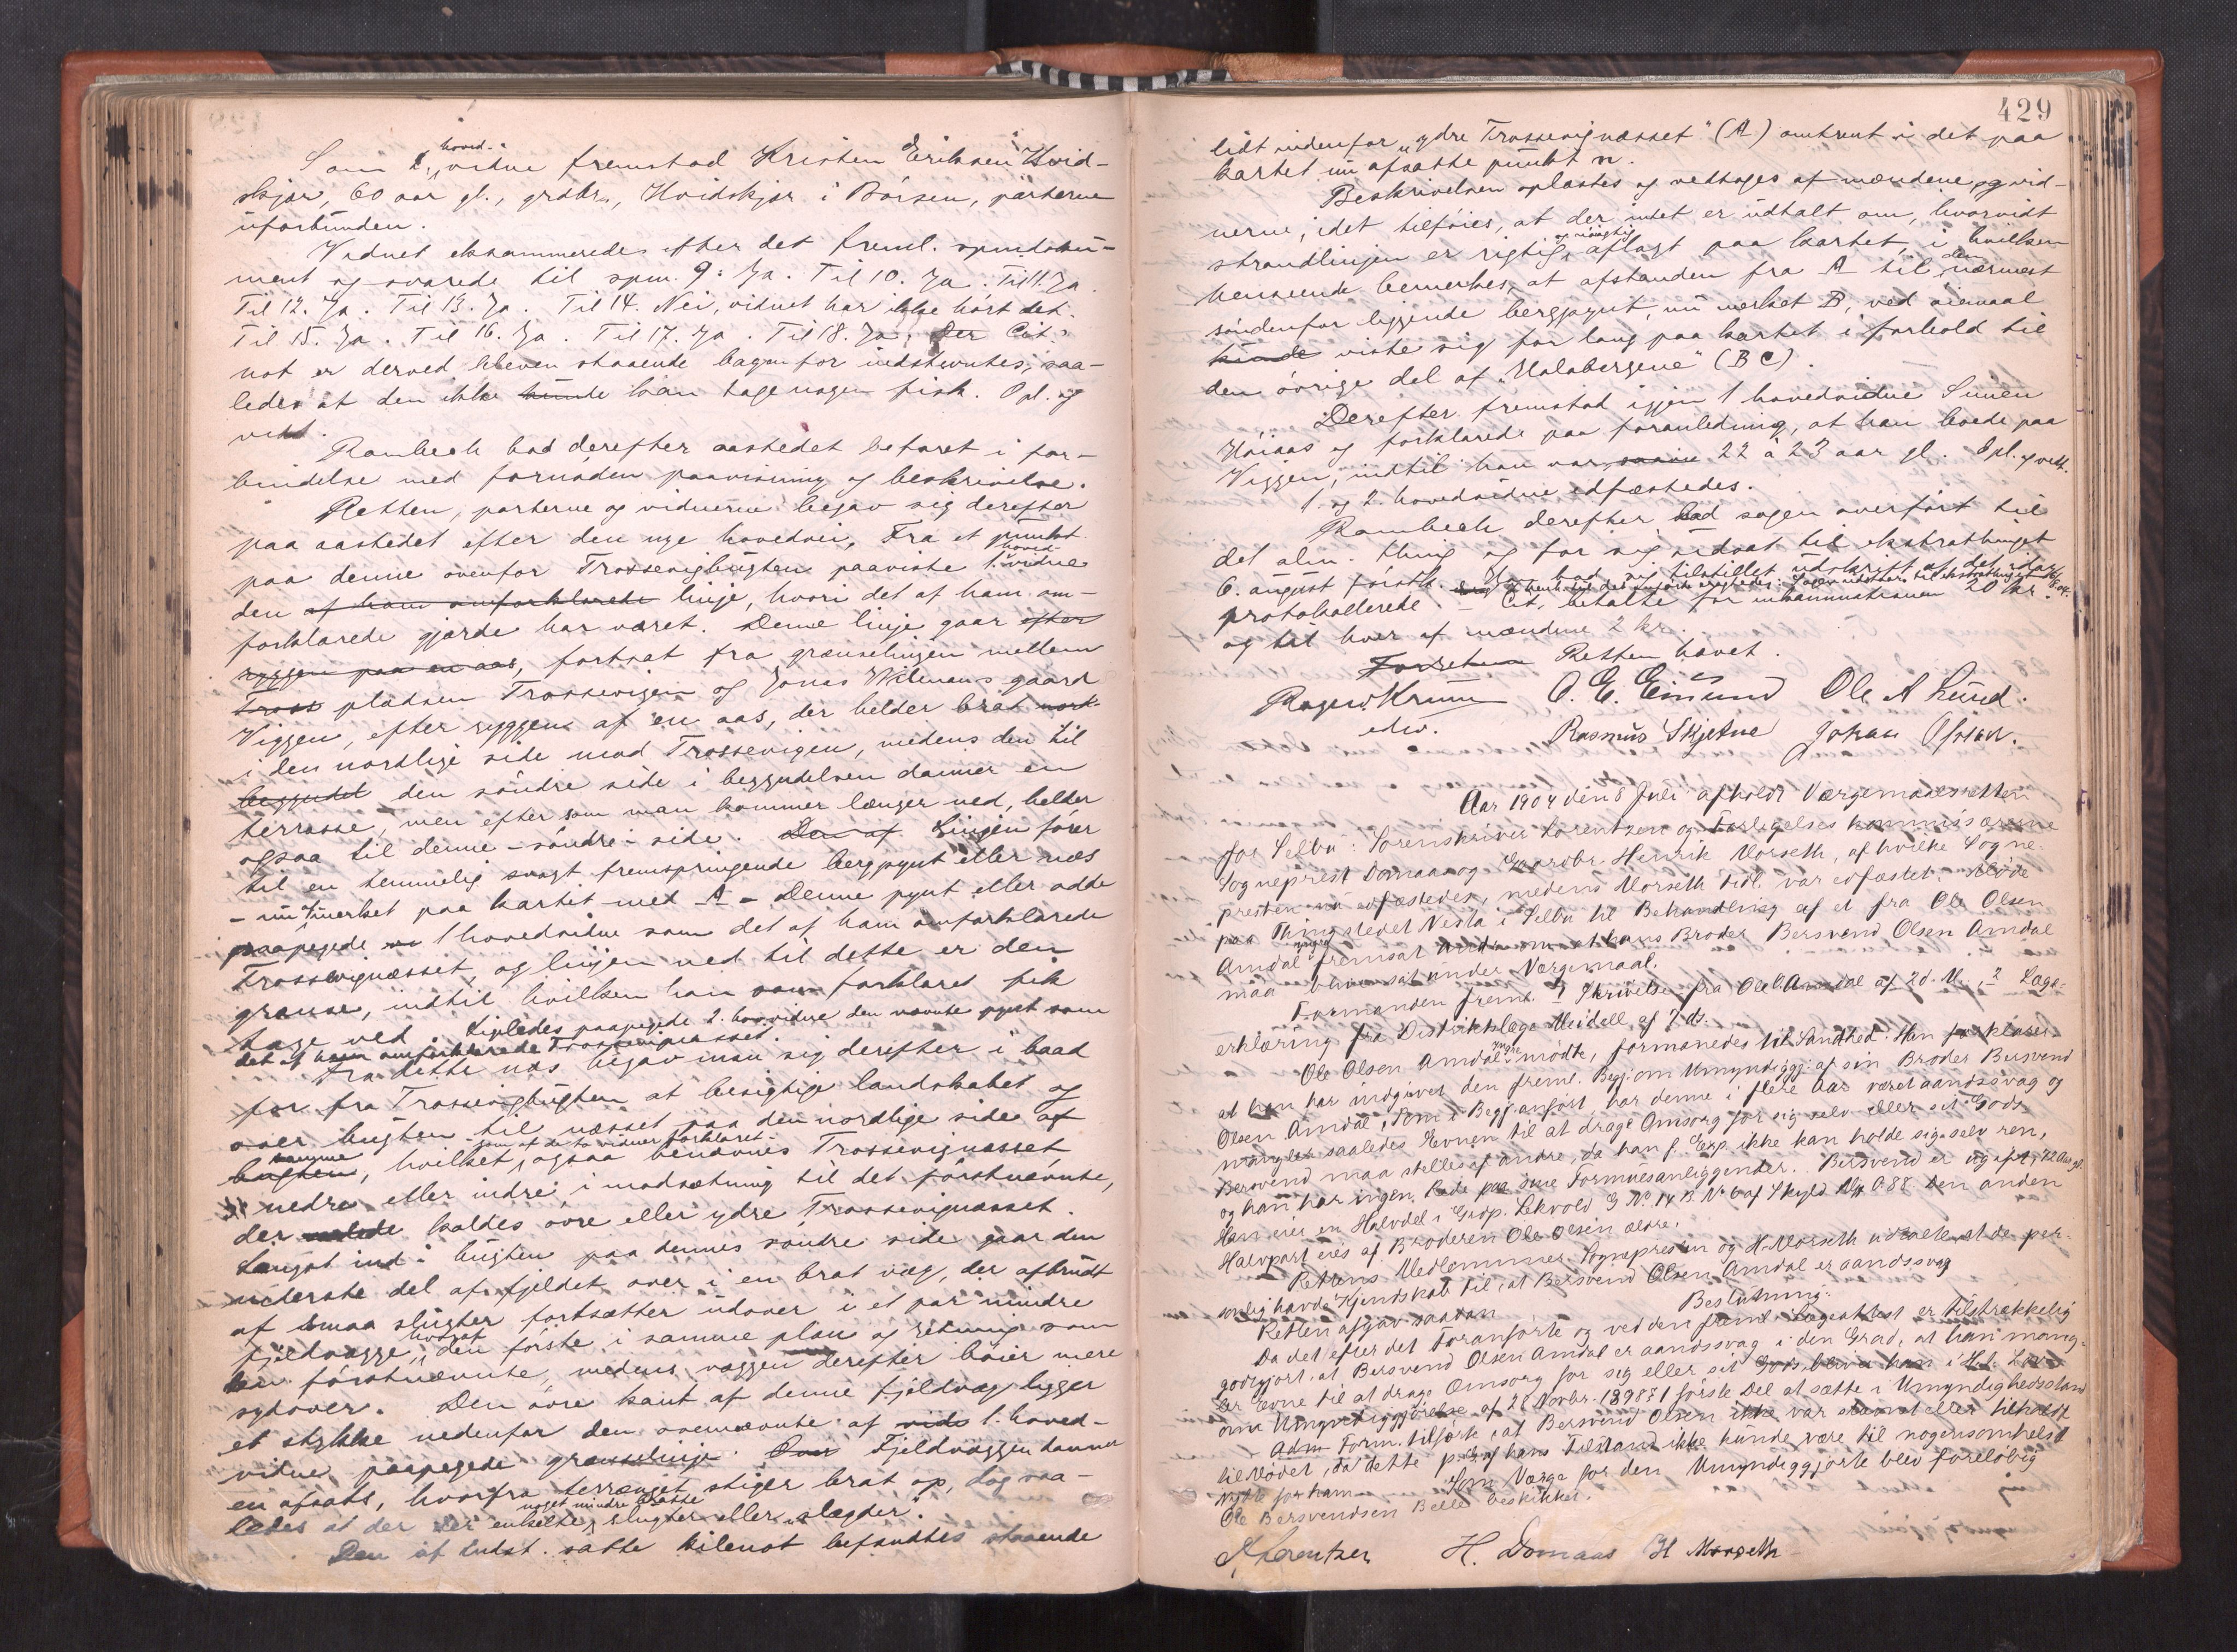 Som 2. hoved-vidne fremstod Kristen Eriksen Hvid-
skjær, 60 aar gl., grdbr., Hvidskjær i Børsen, parterne
uforbunden.
Vidnet eksammeredes efter det freml. spmdoku-
ment og svarede til spm. 9: Ja. Til 10. Ja. Til 11. Ja.
Til 12. Ja. Til 13. Ja. Til 14. Nei, vidnet har ikke hørt det.
Til 15. Ja. Til 16. Ja. Til 17. Ja. Til 18. Ja. Der Cit.s
not er derved bleven staaende bagenfor indstevntes, saa-
ledes at den ikke kunde kan tage nogen fisk. Opl. og
vedt.
Rambech bad derefter aastedet befaret i for-
bindelse med fornøden paavisning og beskrivelse.
Retten, parterne og vidnerne begav sig derefter
paa aastedet efter den nye hovedvei. Fra et punkt
paa denne ovenfor Trossevigbugten paaviste 1. hoved-vidne
den af ham omforklarede linje, hvori det af ham om-
forklarede gjærde har været. Denne linje gaar efter
ryggen paa en aas, fortsat fra grænselinjen mellem
Tross pladsen Trossevigen og Jonas Wilmans gaard
Viggen, efter ryggen af en aas, der helder brat nork-
i den nordlige side mod Trossevigen, medens den til
begyndet den søndre side i begyndelsen danner en
terrasse, men efter som man kommer længer ned, helder
ogsaa til denne - søndre - side. Den af Linjen fører
til en temmelig svagt fremspringende bergpynt eller næs
- nu merket paa kartet med A - Denne pynt eller odde
paapegede 1 hovedvidne som det af ham omforklarede
Trossevignæsset, og linjen ned til dette er den
grænse, indtil hvilken han som forklaret fik
tage ved. Ligeledes paapegede 2. hovvidne den nævnte pynt som
det af ham omforklarede Trossevignæsset.
Fra dette næs begav man sig derefter i baad
for fra Trossevigbugten at besigtige landskabet og
over bugten til næsset paa den nordlige side af
bugten samme, hvilket, - som af de to vidner forklaret - ogsaa benævnes Trossevignæsset
nedre eller indre i modsætning til det førstnævnte,
der kaldes øvre eller ydre Trossevignæsset.
Længst ind i bugten paa dennes søndre side gaar den
uderste del af fjeldet over i en brat væg, der afbrudt
af smaa slugter fortsætter udover i et par mindre
fjeldvægge, hvoraf den første i samme plan og retning som
den førstnævnte, medens væggen derefter bøier mere
sydover. Den øvre kant af denne fjeldvæg ligger
et stykke nedenfor den ovennævnte af vids 1. hoved-
vidne paapegede grænselinje. Over Fjeldvæggen danner
en afsats, hvorfra terrænget stiger brat op, dog saa-
ledes at der er enkelte, noget mindre bratte slugter eller "slægder".
Den af Indst. satte kilenot befandtes staaende
429
lidt indenfor "ydre Trossevignæsset" (A) omtrent i det paa
kartet nu afsatte punkt n.
Beskrivelsen oplæstes og vedtoges af mændene og vid-
nerne, idet tilføies, at der intet er udtalt om, hvorvidt
strandlinjen er rigtig og nøiagtig aflagt paa kartet, i hvilken
henseende bemerkes, at afstanden fra A til den nærmest
søndenfor liggende bergpynt, nu merket B, ved øiemaal
kunde viste sig for lang paa kartet i forhold til
den øvrige del af "Halabergene" (B C).
Derefter fremstod igjen 1 hovedvidne Simen
Høiaas og forklarede paa foranledning, at han boede paa
Viggen, indtil han var 22 à 23 aar gl. Opl. og vedt.
1. og 2. hovedvidne edfæstedes.
Rambech derefter bad sagen overført til
det alm. thing og for sig udsat til ekstrathinget
6. august førstk. Han bad sig tilstillet udskrift af det idag
protokollerede. - Cit. betalte for inkamination 20 kr.
og til hver af mændene 2 kr.
Forretn Retten hævet.
Ragnv. Krum O. E. Eimund Ole A Lund.
edsv. Rasmus Skjetne Johan Olsen.
Aar 1904 den 8 Juli afholdt Værgemaalsretten
for Selbu: Sorenskriver Lorentzen og Forligelseskommissærerne
Sogneprest Domaas og Gaardbr. Henrik Morseth, af hvilke Sogne-
presten nu edfæstedes, medens Morseth tidl. var edfæstet. Møde
paa Thingstedet Nesta i Selbu til Behandling af et fra Ole Olsen
Amdal yngre fremsat Andr. om at hans Broder Bersvend Olsen Amdal
maa blive sat under Værgemaal.
Formanden freml. 1 Skrivelse fra Ole O. Amdal af 2d. M., 2 Læge-
erklæring fra Distriktslæge Meidell af 7 ds.
Ole Olsen Amdal yngre mødte, formanedes til Sandhed. Han forklarer
at han har indgivet den freml. Begj. om Umyndiggj. af sin Broder Bersvend
Olsen Amdal, som i Begj. anført, har denne i flere Aar været aandssvag og
mangler saaledes Evnen til at drage Omsorg for sig selv eller sit Gods.
Bersvend maa stelles af andre, da han f. Exp. ikke kan holde sig selv ren,
og han har ingen Rede paa sine Formuesanliggender. Bersvend er ugift, 72 Aar gl.
Han eier en Halvdel i Grdp. Lekvold G No. 14 B. No 6 af Skyld Mk 0.88 Den anden
Halvpart eies af Broderen Ole Olsen ældre.
Rettens Medlemmer Sognepresten og H. Morseth udtalte at de per-
sonlig havde Kjendskab til, at Bersvend Olsen Amdal er aandssvag
Retten afgav saadan Beslutning:
Da det efter det foranførte og ved den freml. Lægeattest er tilstrækkelig
godtgjort at Bersvend Olsen Amdal er aandssvag i den Grad, at han mang-
ler Evne til at drage Omsorg for sig eller sit Gods, bliver han i Hd. Lov
om Umyndiggjørelse af 28 Novbr. 1898 § 1 første Del at sætte i Umyndighedsstand
Adm Form. tilførte, at Bersvend Olsen ikke var stevnet eller tilholdt
til Mødet, da dette p. G. af hans Tilstand ikke kunde være til nogensomhelst
Nytte for ham. Som Værge for den Umyndiggjorte blev foreløbig
Ole Bersvendsen Balle beskikket.
Lorentzen H. Domaas H Morseth